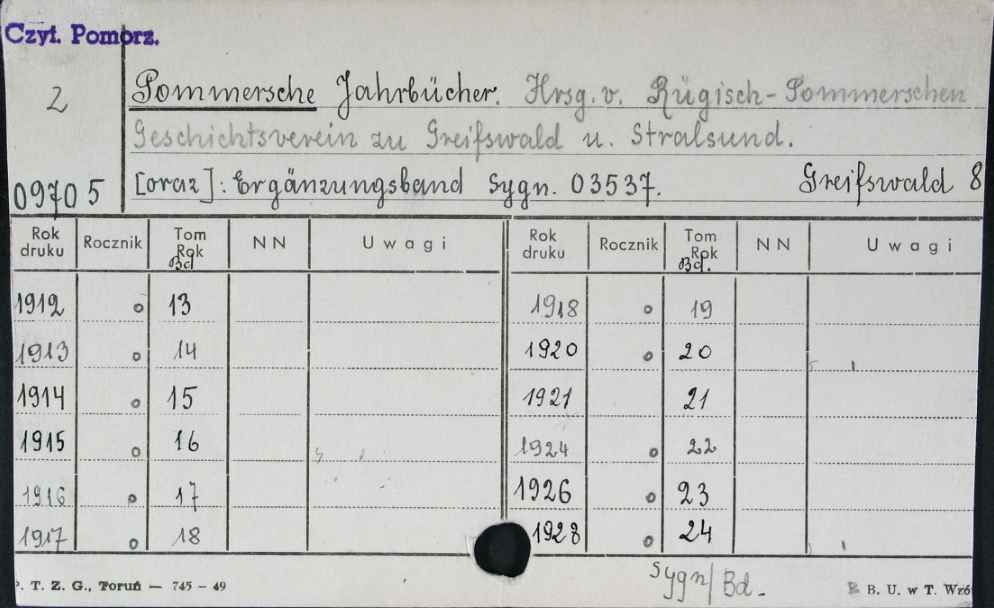 Czyt. Pomorz.
2 Pommersche Jahrbücher. Hrsg. v. Rügisch-Pommerschen
Geschichtsverein zu Greifswald u. Stralsund.
09705 [oraz]: Ergänzungsband Sygn. 03537. Greifswald 8
Rok druku Rocznik Tom Rok Bd NN Uwagi Rok druku Rocznik Tom Rok Bd. NN Uwagi
1912 o 13 1918 o 19
1913 o 14 1920 o 20
1914 o 15 1921 21
1915 o 16 1924 o 22
1916 o 17 1926 o 23
1917 o 18 1928 o 24
Sygn/Bd.
T. Z. G., Toruń — 745 – 49 B. U. w T. Wzó